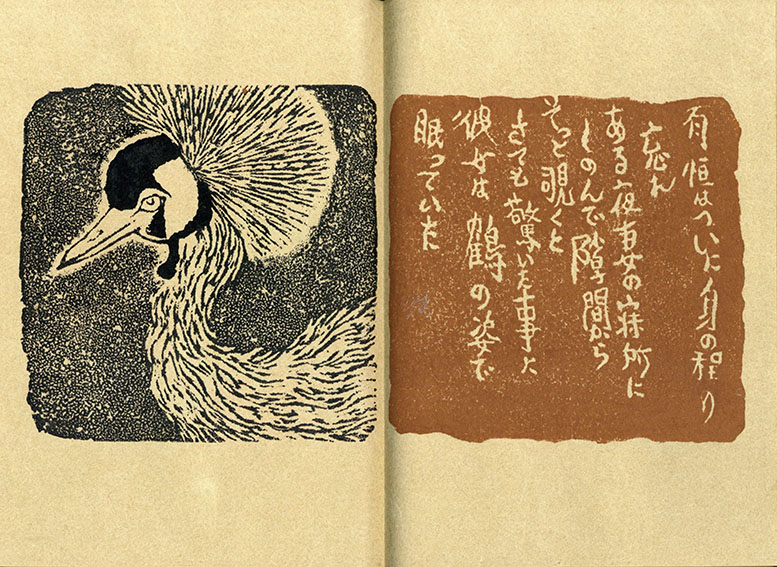 有恒はついに身の程も
忘れ
ある夜女の寝所に
しのんで隙間から
そっと覗くと
さても驚いた事に
彼女は鶴の姿で
眠っていた